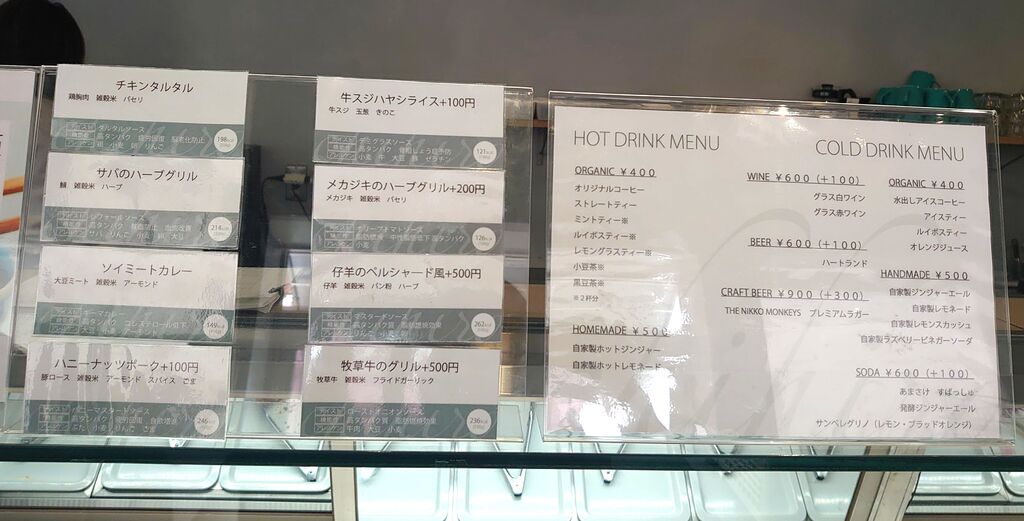 チキンタルタル
鶏胸肉 雑穀米 パセリ
タルタルソース
高タンパク 疲労回復 脳老化防止
卵 小麦 鶏 りんご
198kcal
サバのハーブグリル
鯖 雑穀米 ハーブ
214kcal
ソイミートカレー
大豆ミート 雑穀米 アーモンド
149kcal
ハニーナッツポーク+100円
豚ロース 雑穀米 アーモンド スパイス ごま
ハニーマスタードソース
246kcal
牛スジハヤシライス+100円
牛スジ 玉葱 きのこ
デミグラスソース
小麦 牛 大豆 豚 ゼラチン
121kcal
メカジキのハーブグリル+200円
メカジキ 雑穀米 パセリ
小麦
126kcal
仔羊のペルシャード風+500円
仔羊 パン粉 ハーブ
マスタードソース
262kcal
牧草牛のグリル+500円
牧草牛 雑穀米 フライドガーリック
ローストオニオンソース
牛肉 大豆 小麦
236kcal
HOT DRINK MENU
ORGANIC ¥400
オリジナルコーヒー
ストレートティー
ミントティー※
ルイボスティー※
レモングラスティー※
小豆茶※
黒豆茶※
※2杯分
HOMEMADE ¥500
自家製ホットジンジャー
自家製ホットレモネード
COLD DRINK MENU
WINE ¥600 (+100)
グラス白ワイン
グラス赤ワイン
BEER ¥600 (+100)
ハートランド
CRAFT BEER ¥900 (+300)
THE NIKKO MONKEYS プレミアムラガー
ORGANIC ¥400
水出しアイスコーヒー
アイスティー
ルイボスティー
オレンジジュース
HANDMADE ¥500
自家製ジンジャーエール
自家製レモネード
自家製レモンスカッシュ
自家製ラズベリービネガーソーダ
SODA ¥600 (+100)
あまさけ すぱっしゅ
発酵ジンジャーエール
サンペレグリノ（レモン・ブラッドオレンジ）